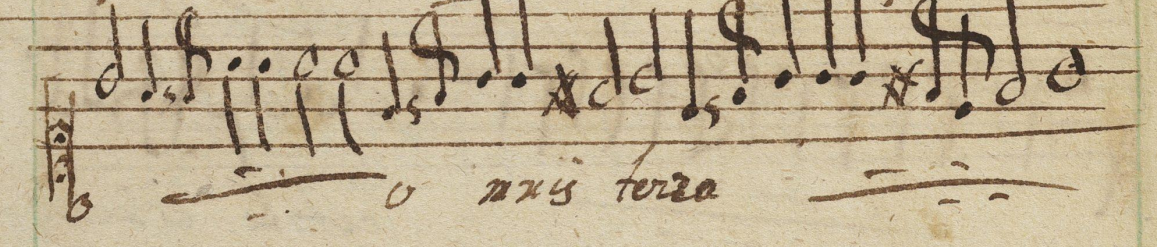 o o mnis terra